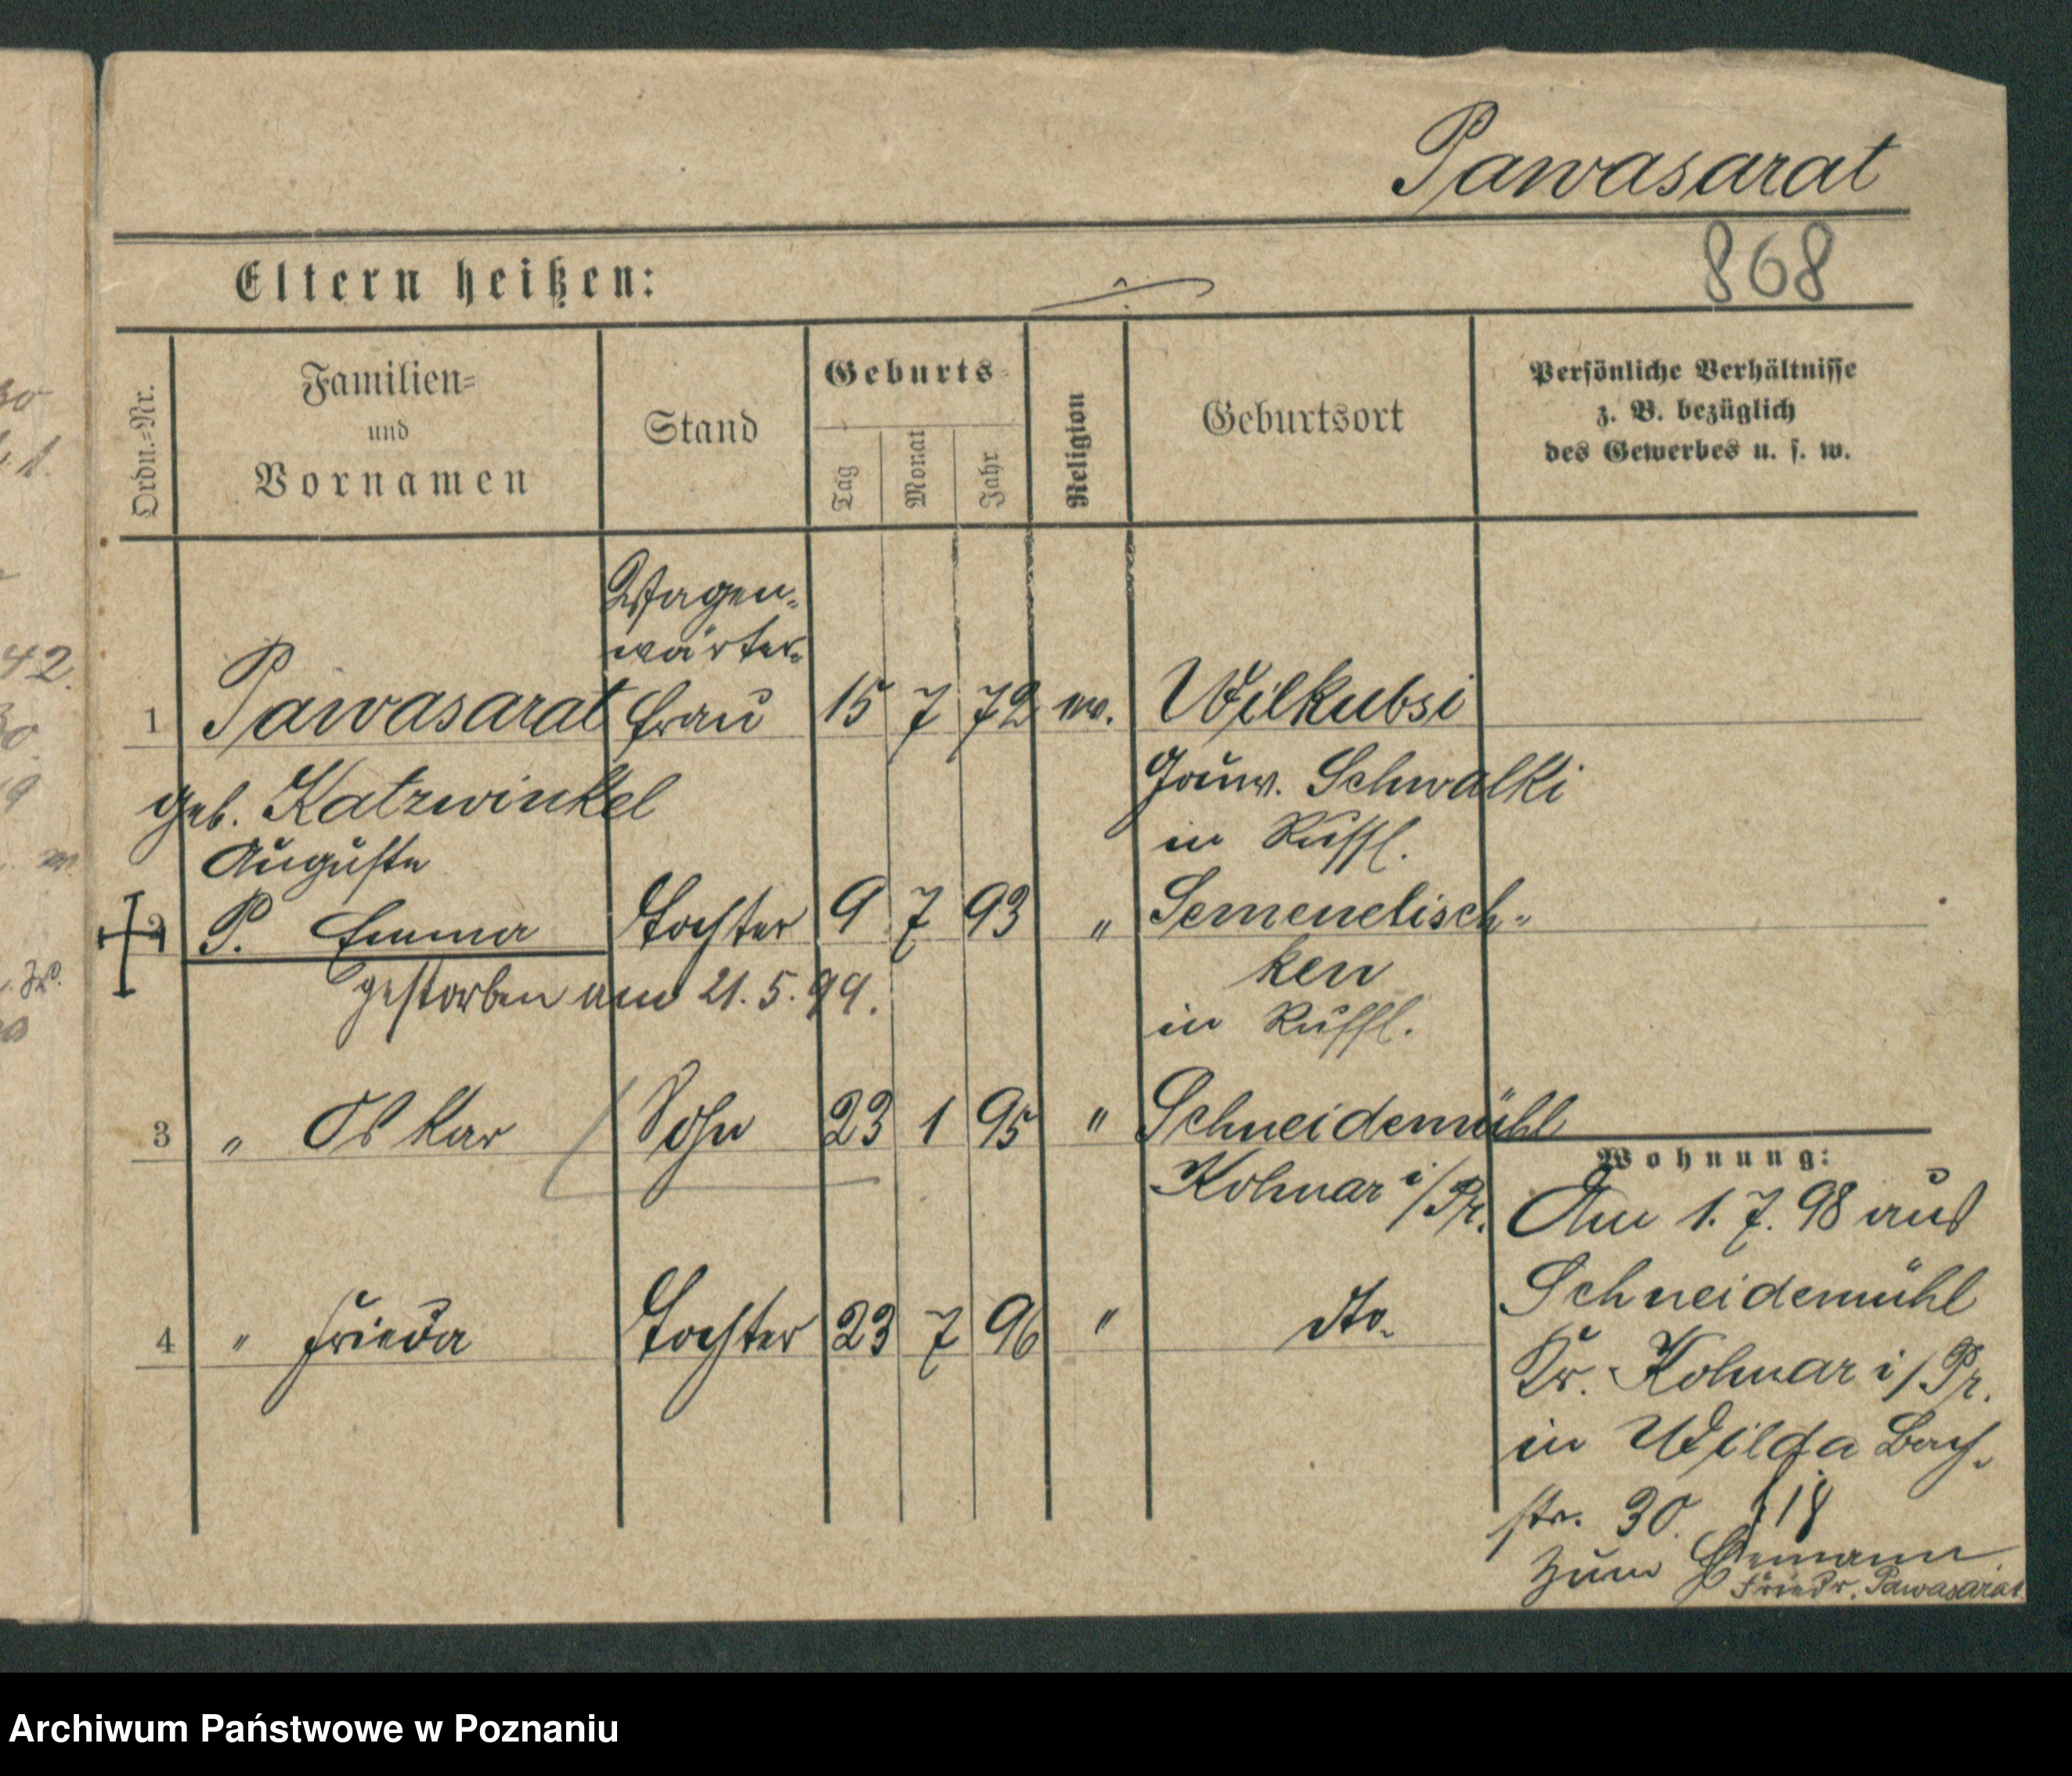 Pawasarat
868
Eltern heißen:
Ordn.=Nr.
Familien=
und
Vornamen
Stand
Geburts=
Tag
Monat
Jahr
Religion
Geburtsort
Persönliche Verhältnisse
z. B. bezüglich
des Gewerbes u. s. w.
Wagen=
wärter=
1 Pawasarat frau 15 7 72 ev. Wilkubsi
geb. Katzwinkel Gouv. Schwalki
Auguste in Russl.
2 P. Emma Tochter 9 7 93 " Semenelisch=
gestorben am 21. 5. 99. ken
in Russl.
3 " Oskar Sohn 23 1 95 " Schneidemühl
Kolmar i/Pr.
4 " Frieda Tochter 23 7 96 " dto.
Wohnung:
Am 1. 7. 98 aus
Schneidemühl
Kr. Kolmar i/Pr.
in Wilda Bach=
str. 30. 18
zum Ehemann
Friedr. Pawasarat
42.
Archiwum Państwowe w Poznaniu